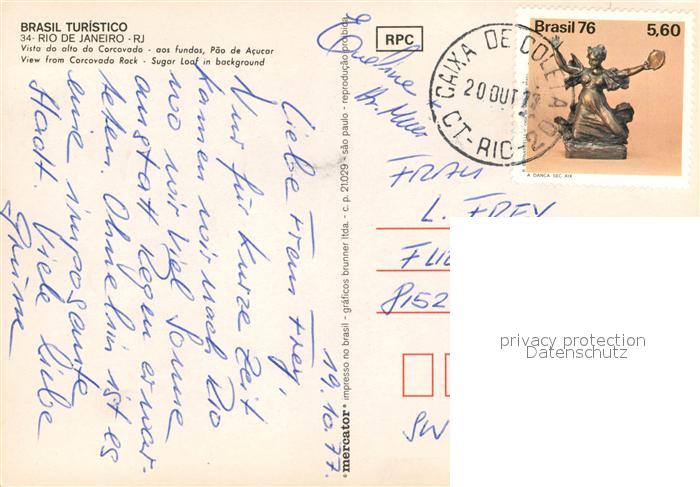 BRASIL TURÍSTICO
34- RIO DE JANEIRO - RJ
Vista do alto do Corcovado - aos fundos, Pão de Açucar
View from Corcovado Rock - Sugar Loaf in background
19.10.77.
Liebe Frau Frey,
Nur für kurze Zeit
kamen wir nach Rio
wo wir viel Sonne
anstatt Regen erwar-
teten. Ohnehin ist es
eine imposante
Stadt. Viele liebe
Grüsse
Eveline
mercator impresso no brasil - gráficos brunner ltda. - c. p. 21.029 - são paulo - reprodução proibida
RPC
CAIXA DE COLETA
20 OUT 77
CT-RIO-2
Brasil 76 5,60
A DANÇA SEC XIX
FRAU
L. FREY
8152
SW
privacy protection
Datenschutz